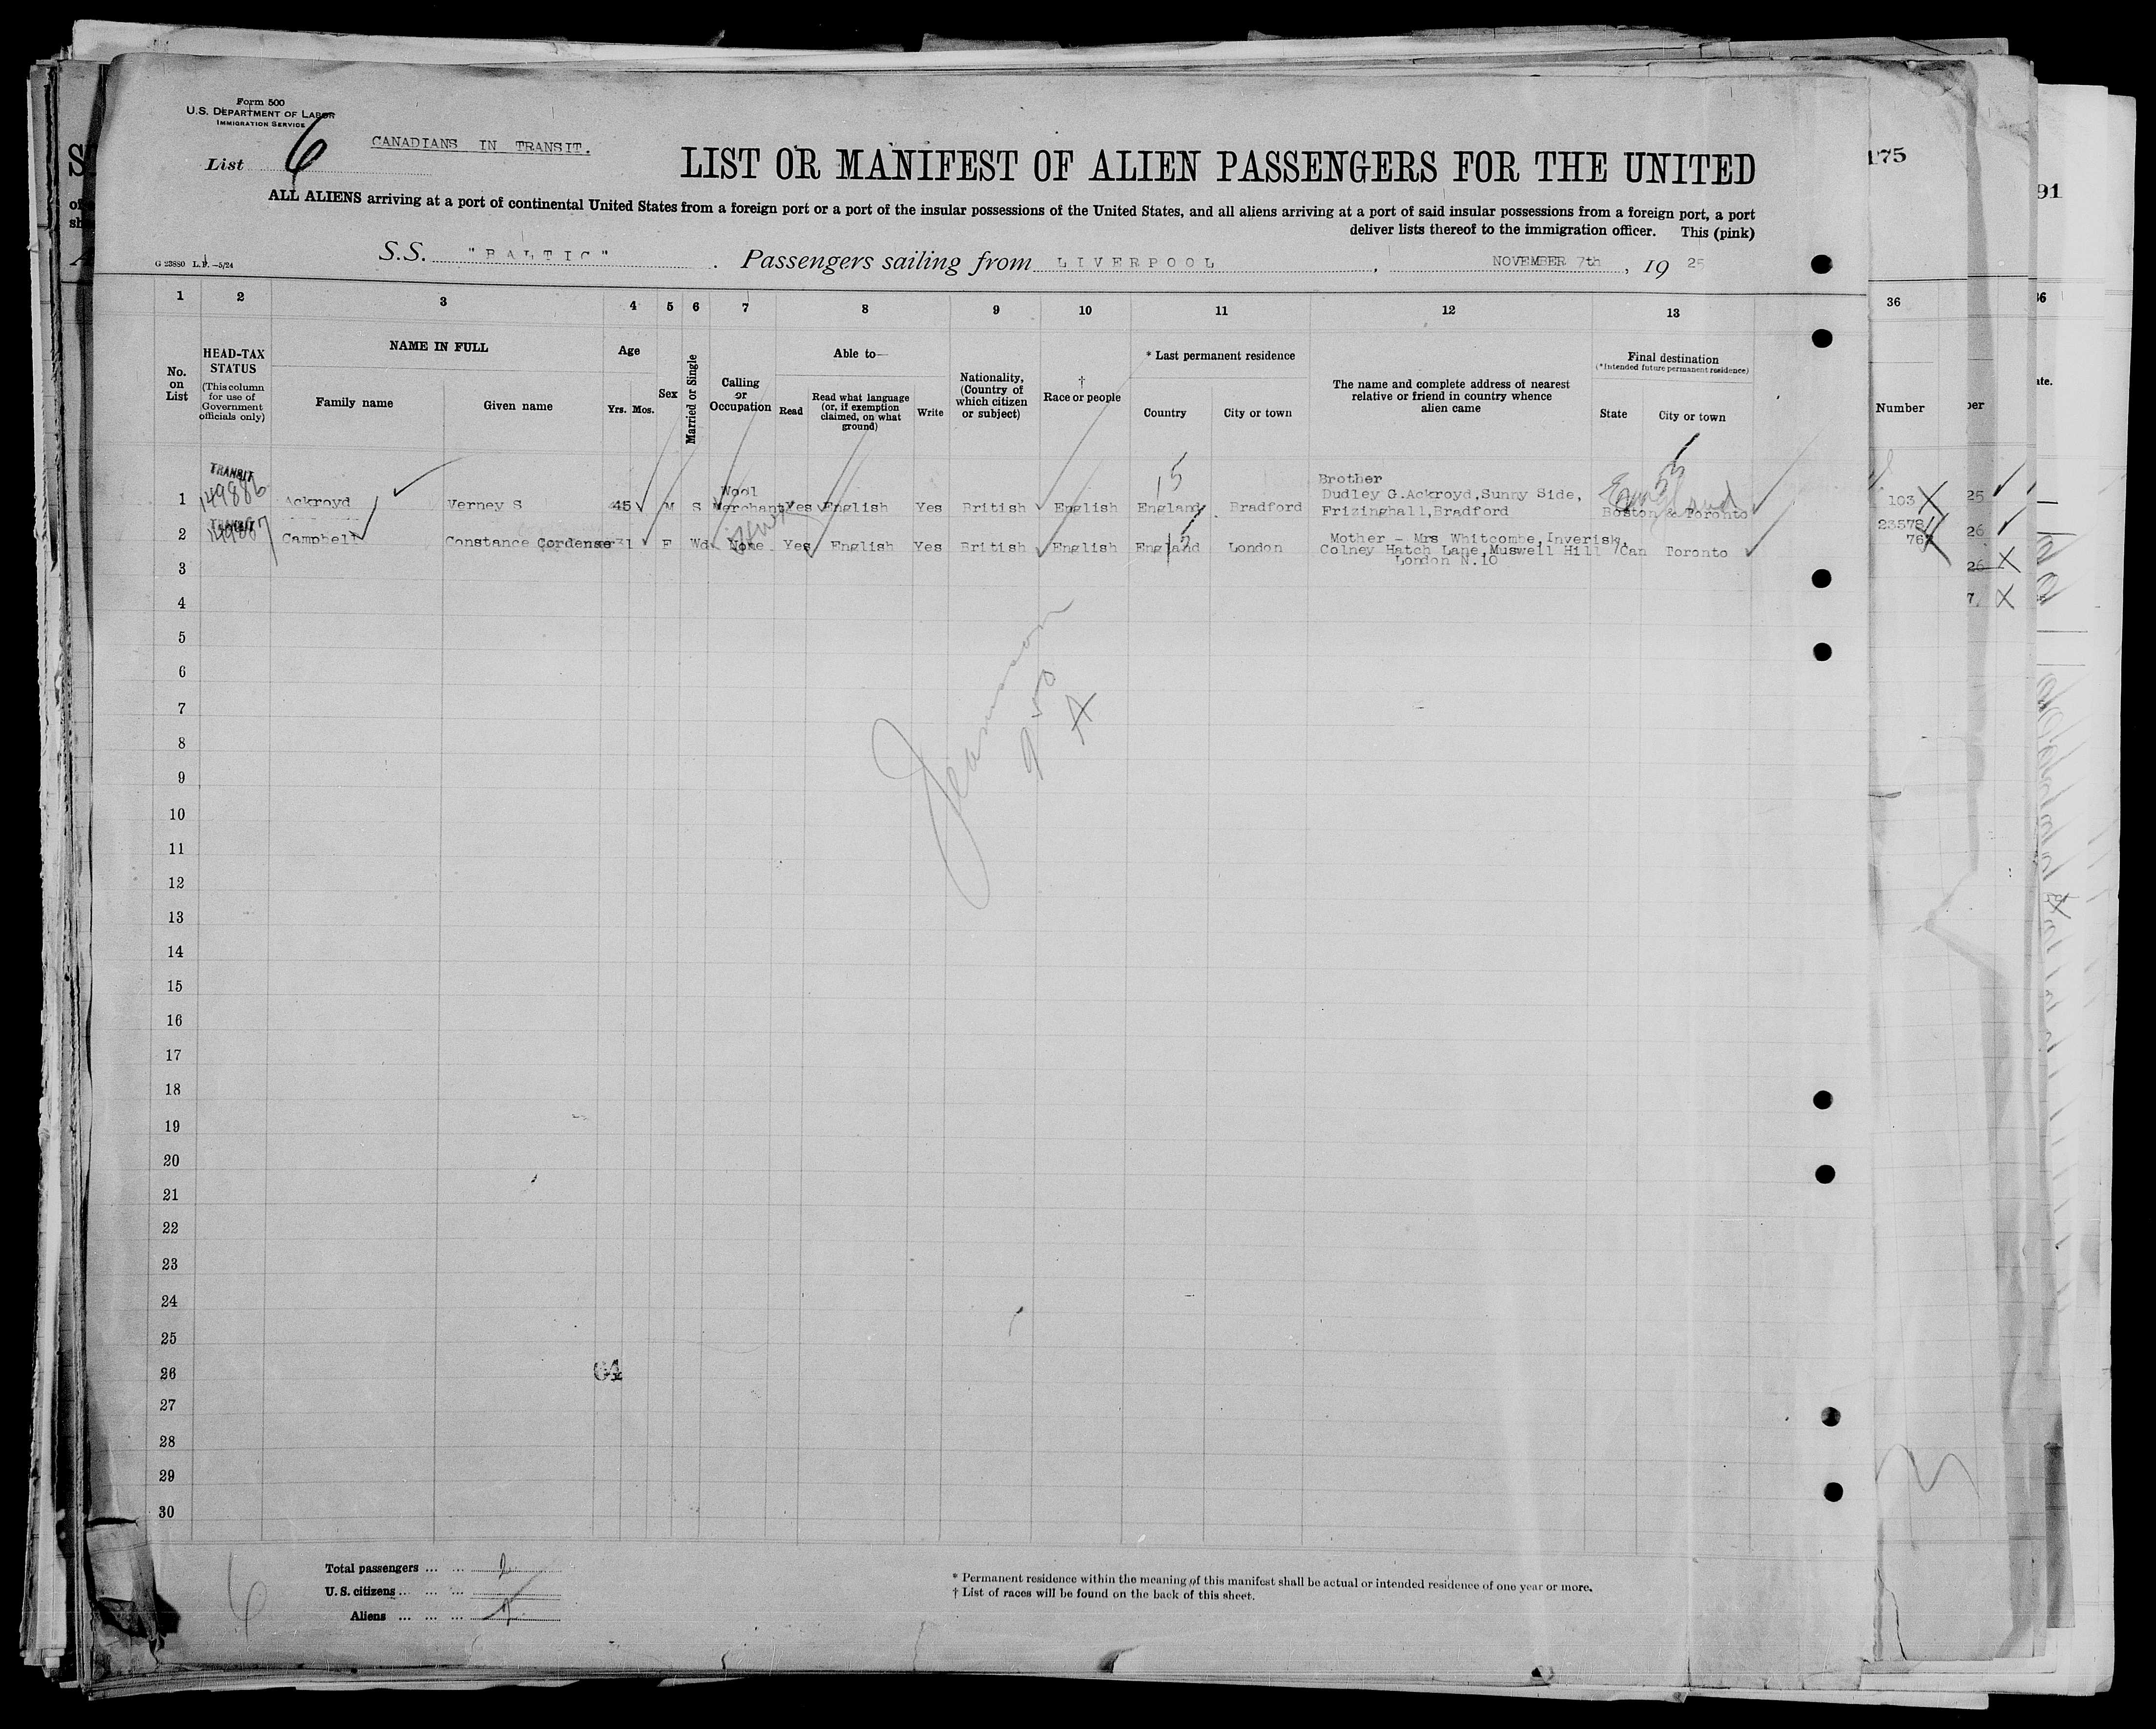 Form 500
U.S. DEPARTMENT OF LABOR
IMMIGRATION SERVICE
List 6
CANADIANS IN TRANSIT.
LIST OR MANIFEST OF ALIEN PASSENGERS FOR THE UNITED
ALL ALIENS arriving at a port of continental United States from a foreign port or a port of the insular possessions of the United States, and all aliens arriving at a port of said insular possessions from a foreign port, a port
deliver lists thereof to the immigration officer. This (pink)
G 23880 L.P. —5/24
S.S. "BALTIC". Passengers sailing from LIVERPOOL, NOVEMBER 7th, 19 25
1 2 3 4 5 6 7 8 9 10 11 12 13
No. on List
HEAD-TAX STATUS
(This column for use of Government officials only)
NAME IN FULL
Family name
Given name
Age
Yrs. Mos.
Sex
Married or Single
Calling or Occupation
Able to—
Read
Read what language (or, if exemption claimed, on what ground)
Write
Nationality, (Country of which citizen or subject)
† Race or people
* Last permanent residence
Country
City or town
The name and complete address of nearest relative or friend in country whence alien came
Final destination
(*Intended future permanent residence)
State
City or town
TRANSIT
149886
1 Ackroyd Verney S 45 M S Wool Merchant Yes English Yes British English England Bradford
Brother
Dudley G.Ackroyd,Sunny Side,
Frizinghall,Bradford
England
Boston & Toronto
15
53
TRANSIT
14987
2 Campbell Constance Cordense 31 F Wd None Yes English Yes British English England London
Mother - Mrs Whitcombe,Inverisk,
Colney Hatch Lane,Muswell Hill
London N.10
Can Toronto
3
4
5
6
7
8
9
10
11
12
13
14
15
16
17
18
19
20
21
22
23
24
25
26
27
28
29
30
950
A
64
6
Total passengers ... ... 2
U. S. citizens ... ... ...
Aliens ... ... ... 2
* Permanent residence within the meaning of this manifest shall be actual or intended residence of one year or more.
† List of races will be found on the back of this sheet.
175
91
36
Number
103
23578
76
25
26
26
7